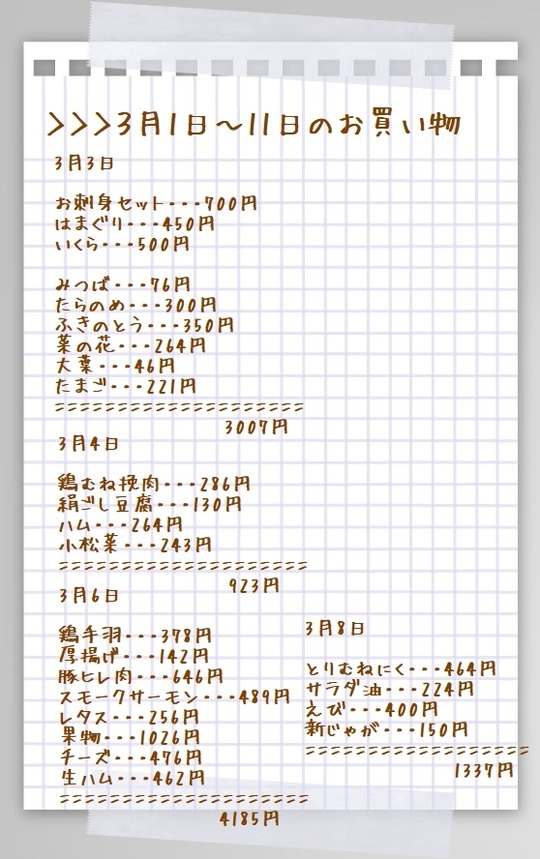 >>>3月1日~11日のお買い物
3月3日
お刺身セット・・・700円
はまぐり・・・450円
いくら・・・500円
みつば・・・76円
たらのめ・・・300円
ふきのとう・・・350円
菜の花・・・264円
大葉・・・46円
たまご・・・221円
====================
3007円
3月4日
鶏むね挽肉・・・286円
絹ごし豆腐・・・130円
ハム・・・264円
小松菜・・・243円
====================
923円
3月6日
鶏手羽・・・378円
厚揚げ・・・142円
豚ヒレ肉・・・646円
スモークサーモン・・・489円
レタス・・・256円
果物・・・1026円
チーズ・・・476円
生ハム・・・462円
====================
4185円
3月8日
とりむねにく・・・464円
サラダ油・・・224円
えび・・・400円
新じゃが・・・150円
==================
1337円